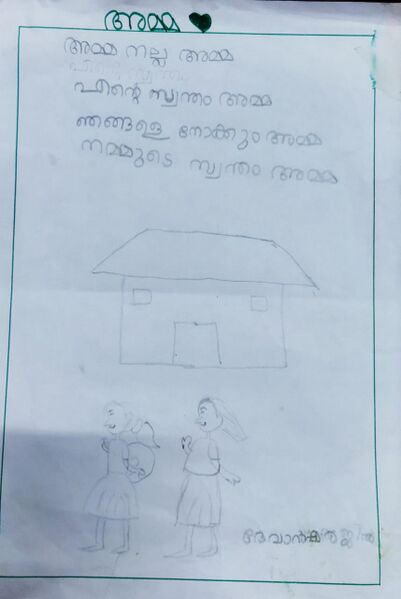 അമ്മ
അമ്മ നല്ല അമ്മ
എന്റെ സ്വന്തം അമ്മ
ഞങ്ങളെ നോക്കും അമ്മ
നമ്മുടെ സ്വന്തം അമ്മ